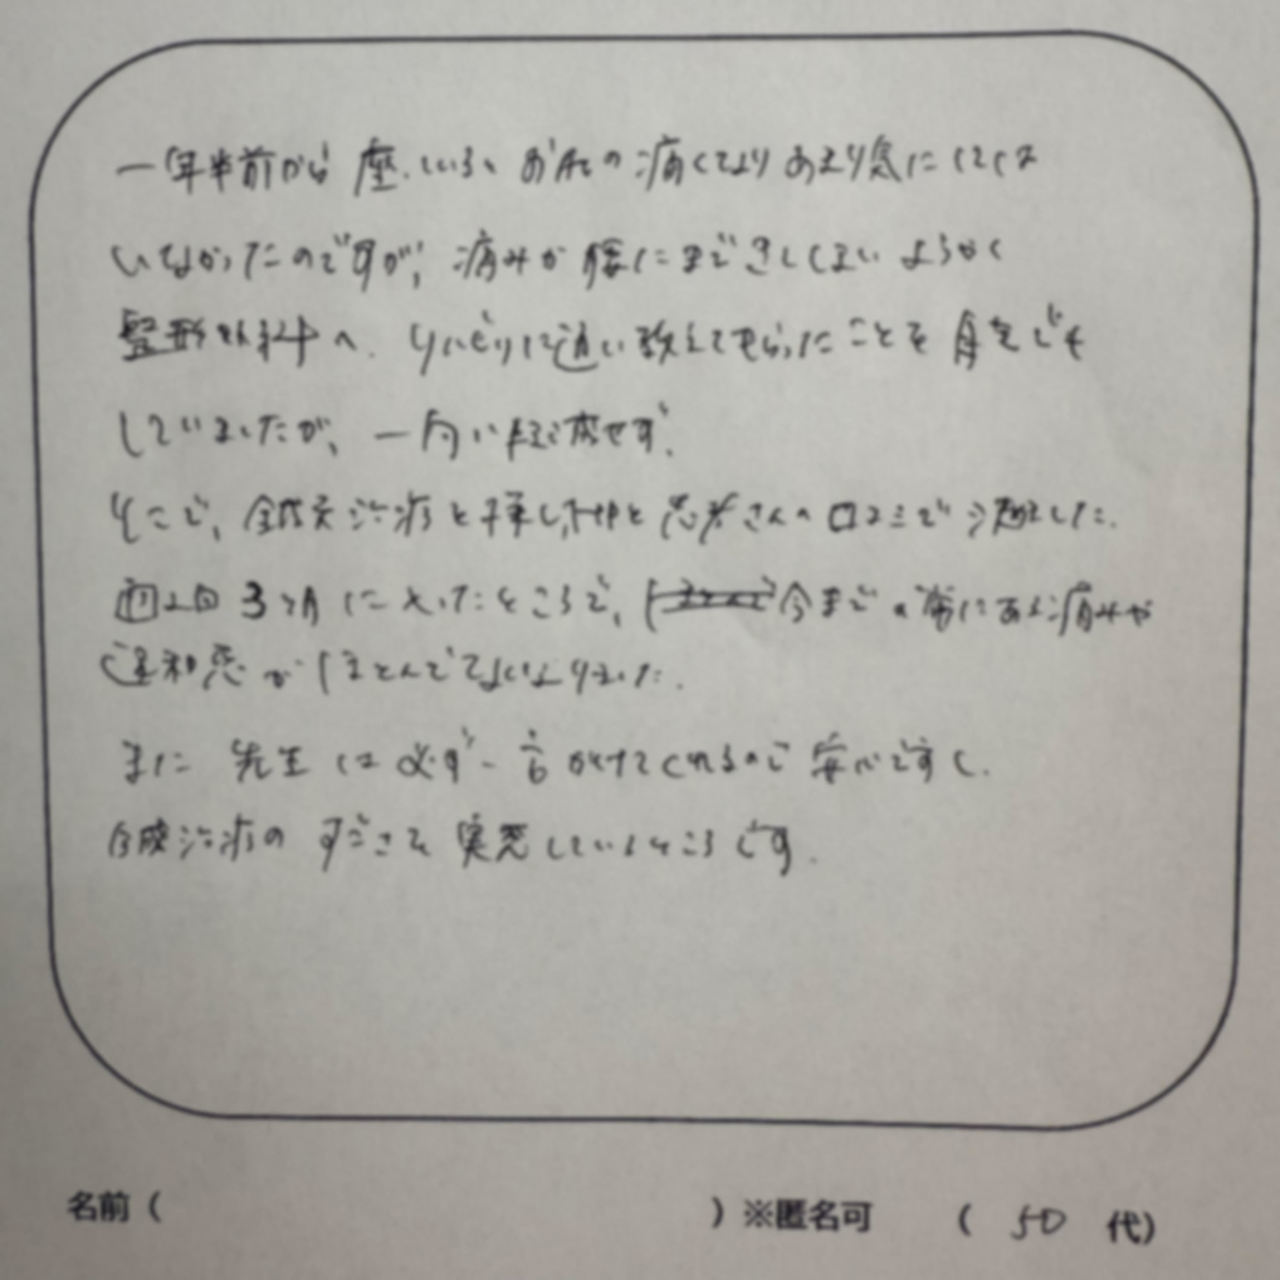 一年半前から座っているとお尻が痛くなりあまり気にしては
いなかったのですが、痛みが腰にまできてしまいようやく
整形外科へ。リハビリに通い教えてもらったことを自宅でも
していましたが、一向に改善せず。
そこで、鍼灸治療を探し、HPと患者さんの口コミで決めました。
週2回 3ヶ月にたったところで、今まで常にあった痛みや
違和感がほとんどなくなりました。
また先生は必ず一言かけてくれるので安心ですし、
鍼治療のすごさを実感しているところです。
名前（　　　）※匿名可　（50代）